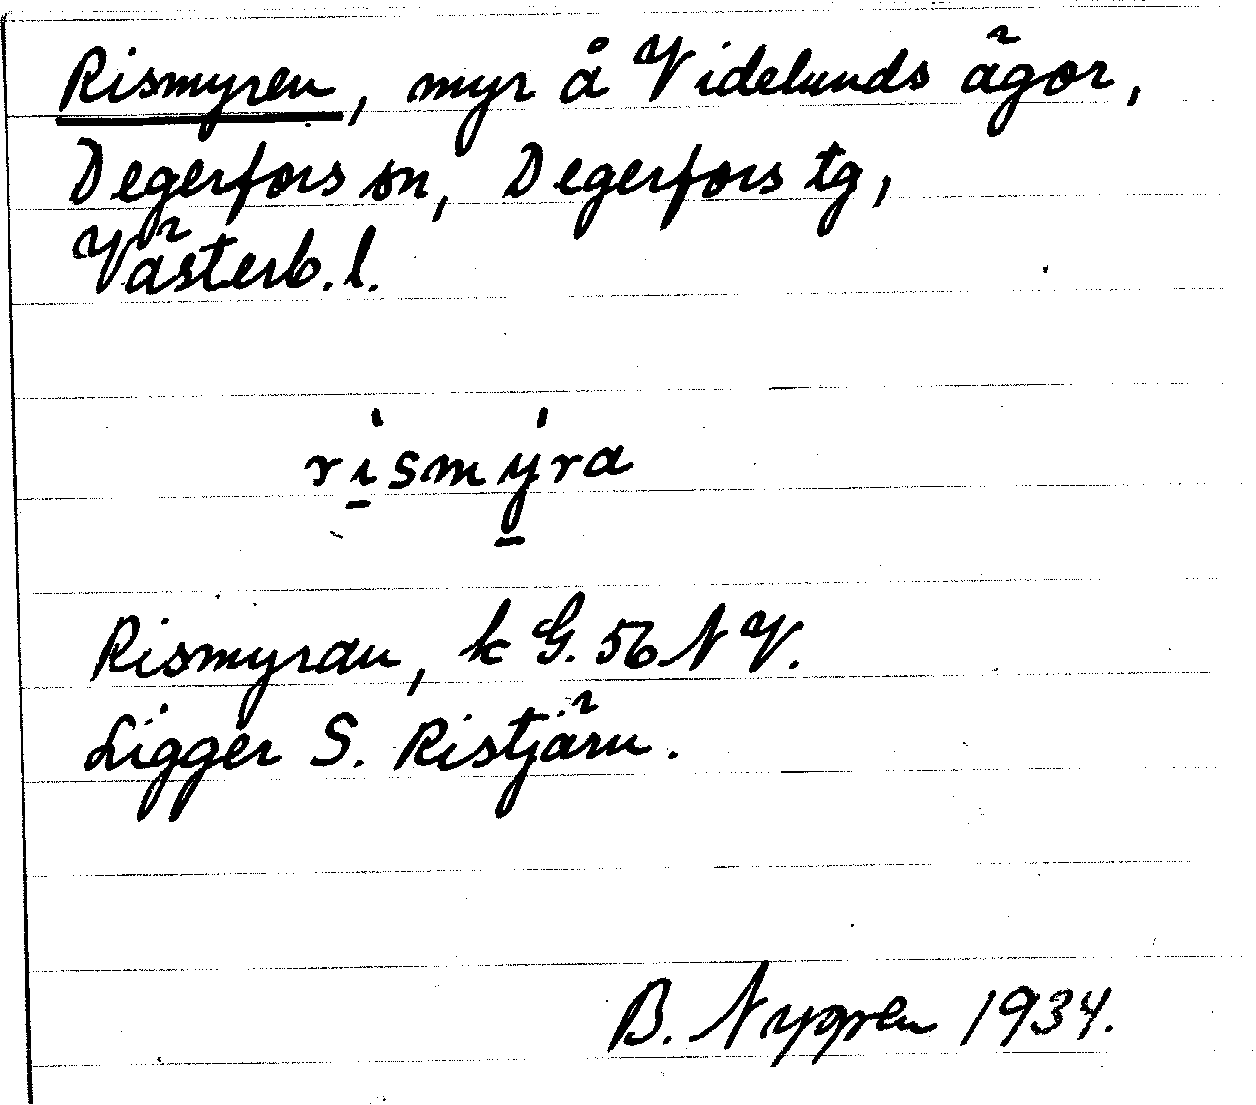 Rismyren, myr å Videlunds ägor,
Degerfors sn, Degerfors tg,
Västerb. l.
ri̱smy̱ra
Rismyran, k G. 56 N V.
Ligger S. Ristjärn.
B. Nygren 1934.